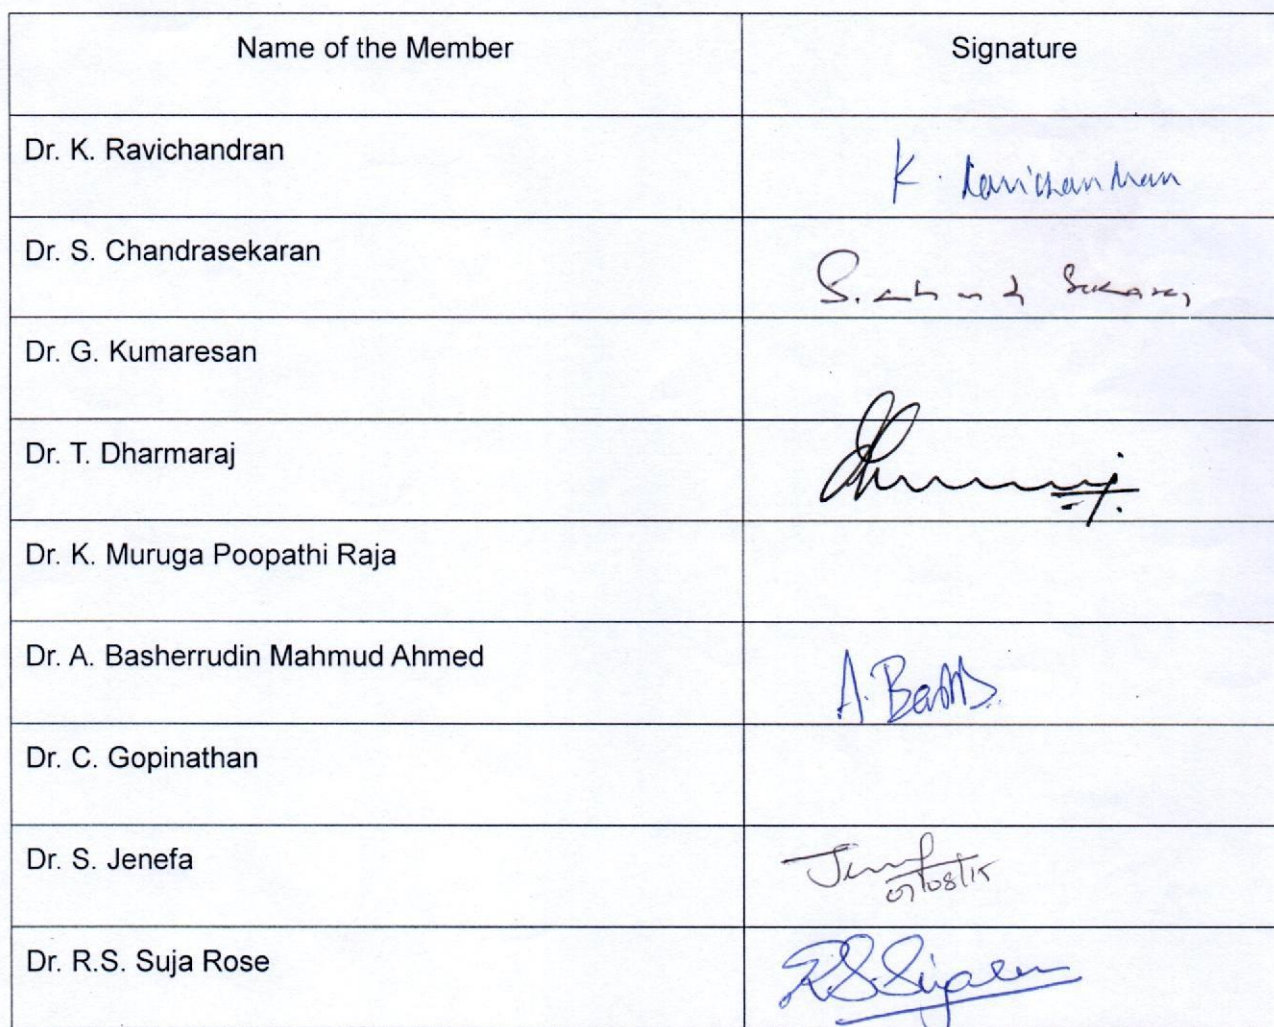 Name of the Member Signature
Dr. K. Ravichandran K. Ravichandran
Dr. S. Chandrasekaran
Dr. G. Kumaresan
Dr. T. Dharmaraj
Dr. K. Muruga Poopathi Raja
Dr. A. Basherrudin Mahmud Ahmed
Dr. C. Gopinathan
Dr. S. Jenefa
07/08/15
Dr. R.S. Suja Rose